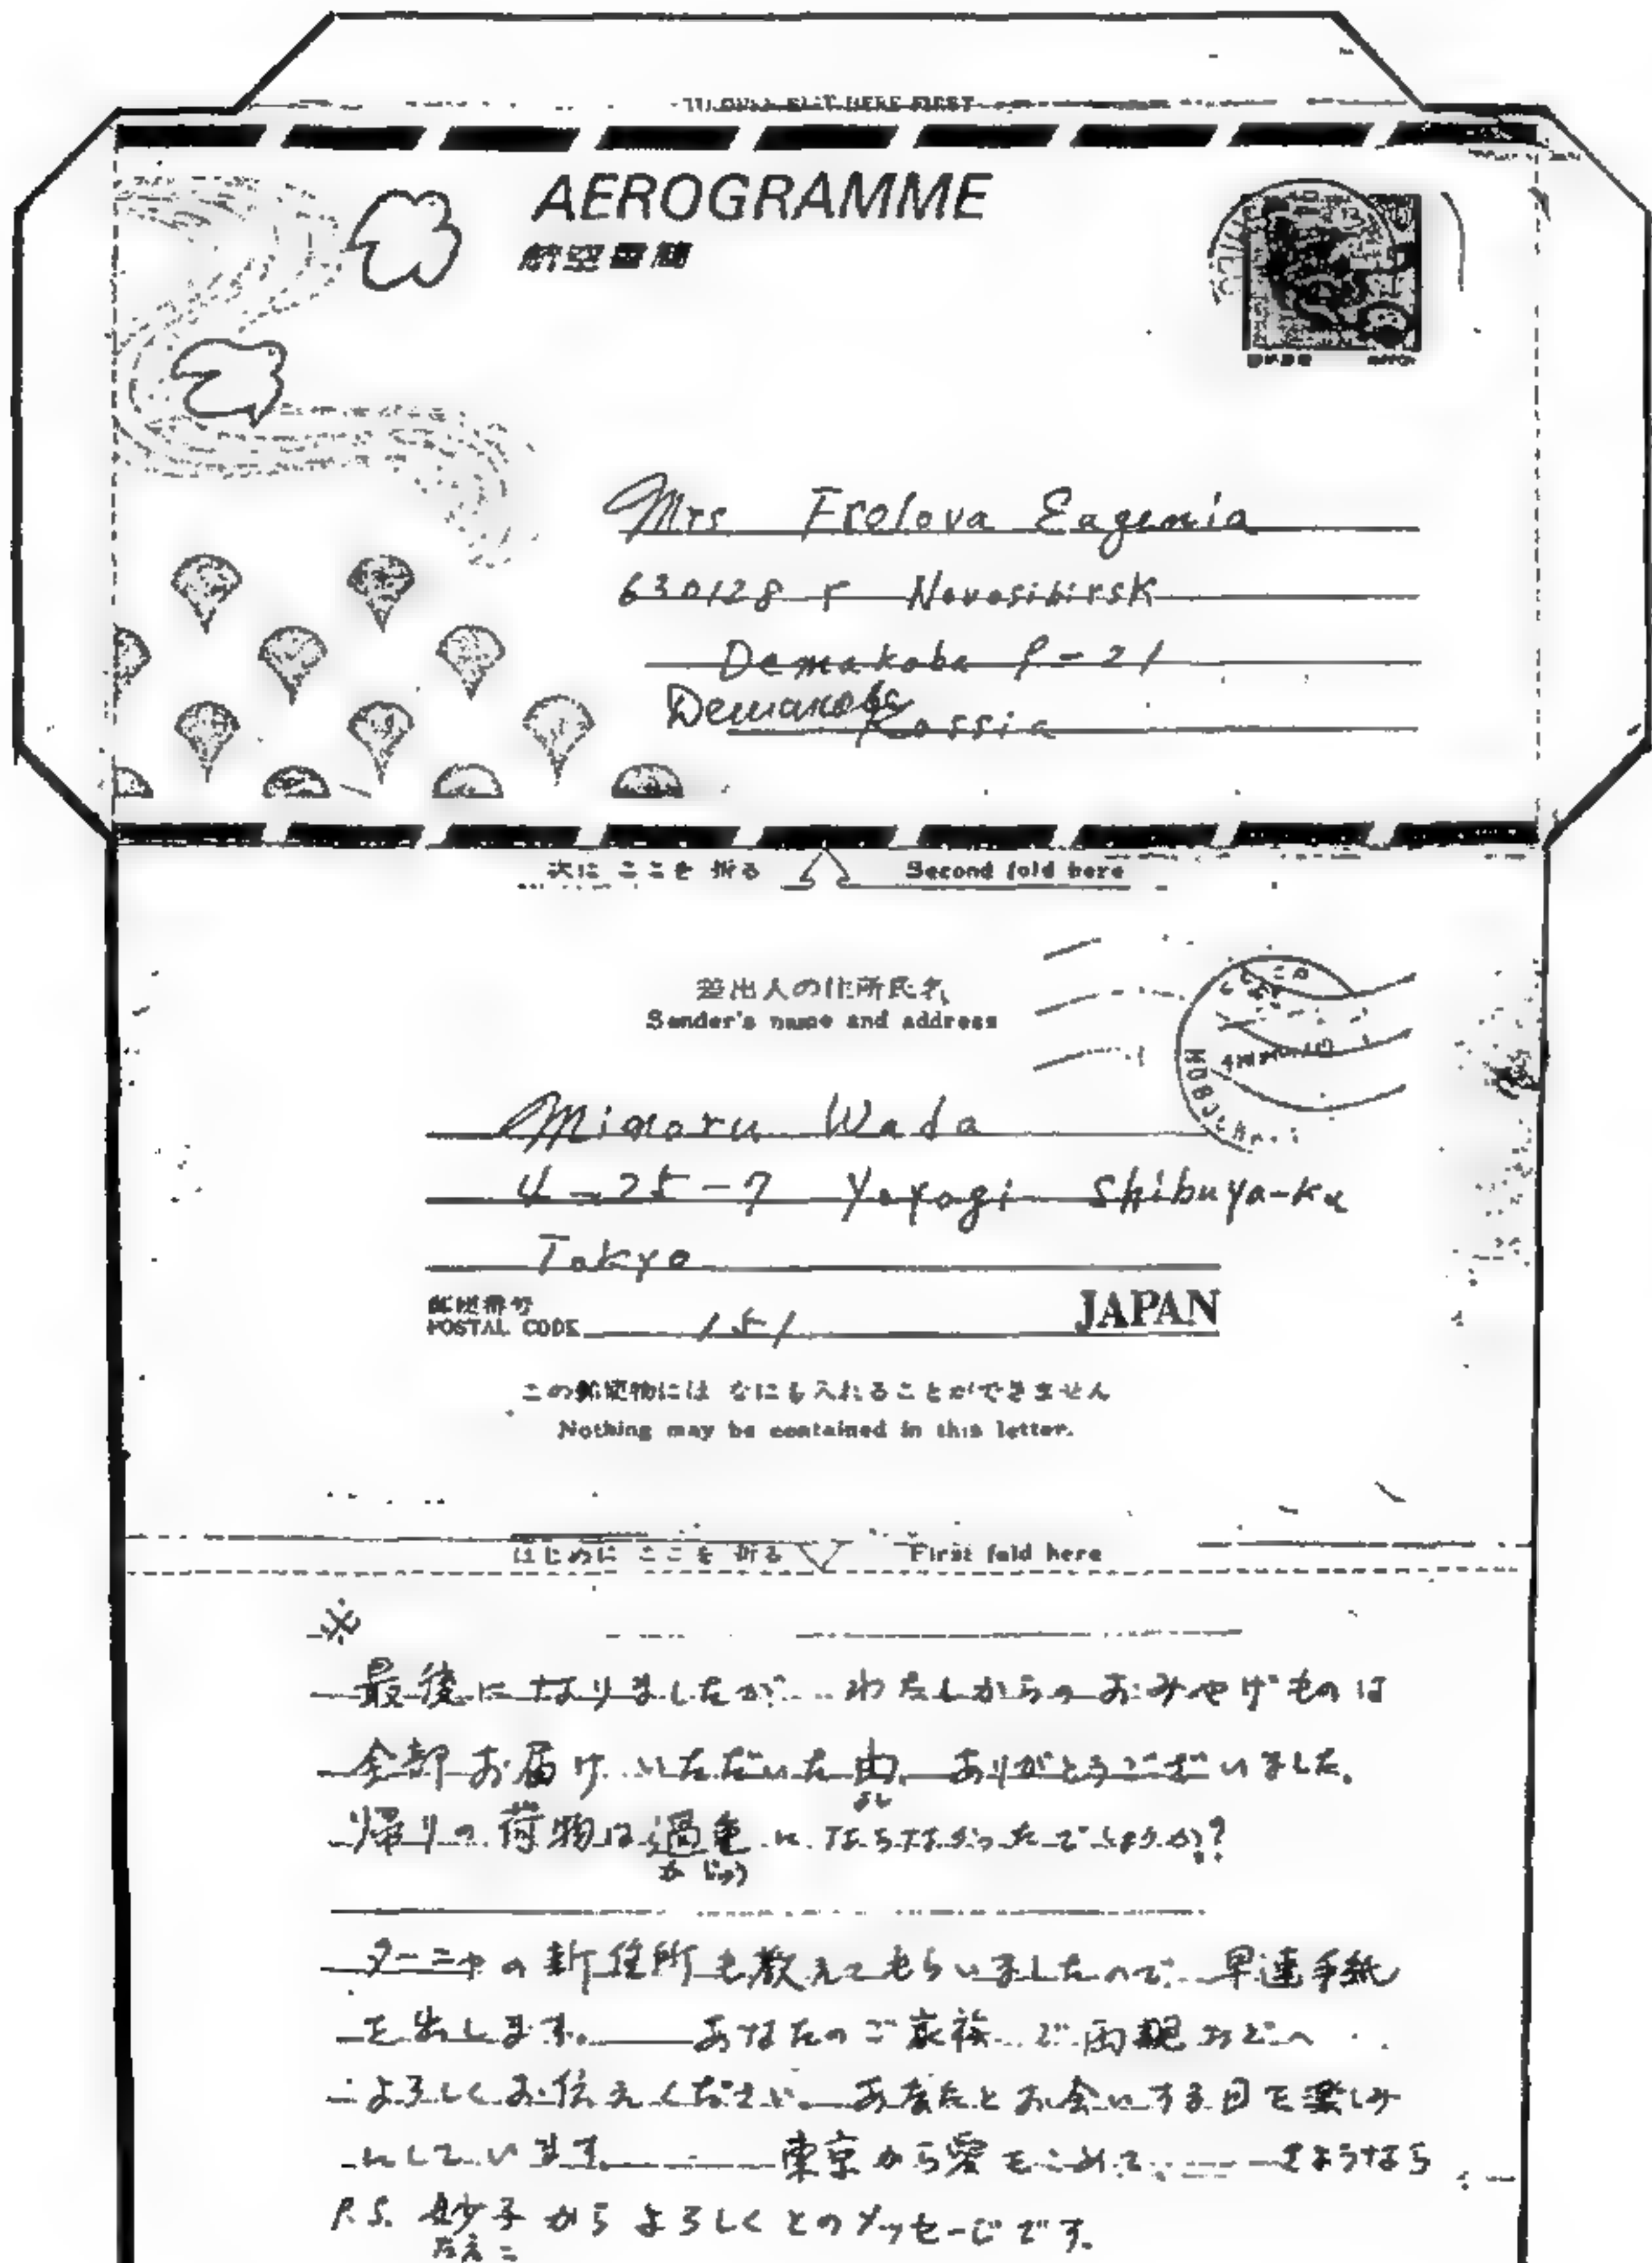 TO OPEN SLIT HERE FIRST
AEROGRAMME
航空書簡
Mrs Frolova Eugenia
630128 г Novosibirsk
Demakoba 9-21
Demakoba
Rossia
次に ここを 折る Second fold here
差出人の住所氏名
Sender's name and address
Minoru Wada
4-25-7 Yoyogi Shibuya-ku
Tokyo
郵便番号
POSTAL CODE 151 JAPAN
この郵便物には なにも入れることができません
Nothing may be contained in this letter.
はじめに ここを 折る First fold here
※
最後になりましたが わたしからのおみやげものは
全部お届けいただいた由、ありがとうございました。
よし
帰りの荷物は過重にならなかったでしょうか?
かじゅう
ターニャの新住所も教えてもらいましたので、早速手紙
を出します。——あなたのご家族、ご両親などへ
よろしくお伝えください。あなたとお会いする日を楽しみ
にしています。——東京から愛をこめて、——さようなら
P.S. 妙子からよろしくとのメッセージです。
たえこ